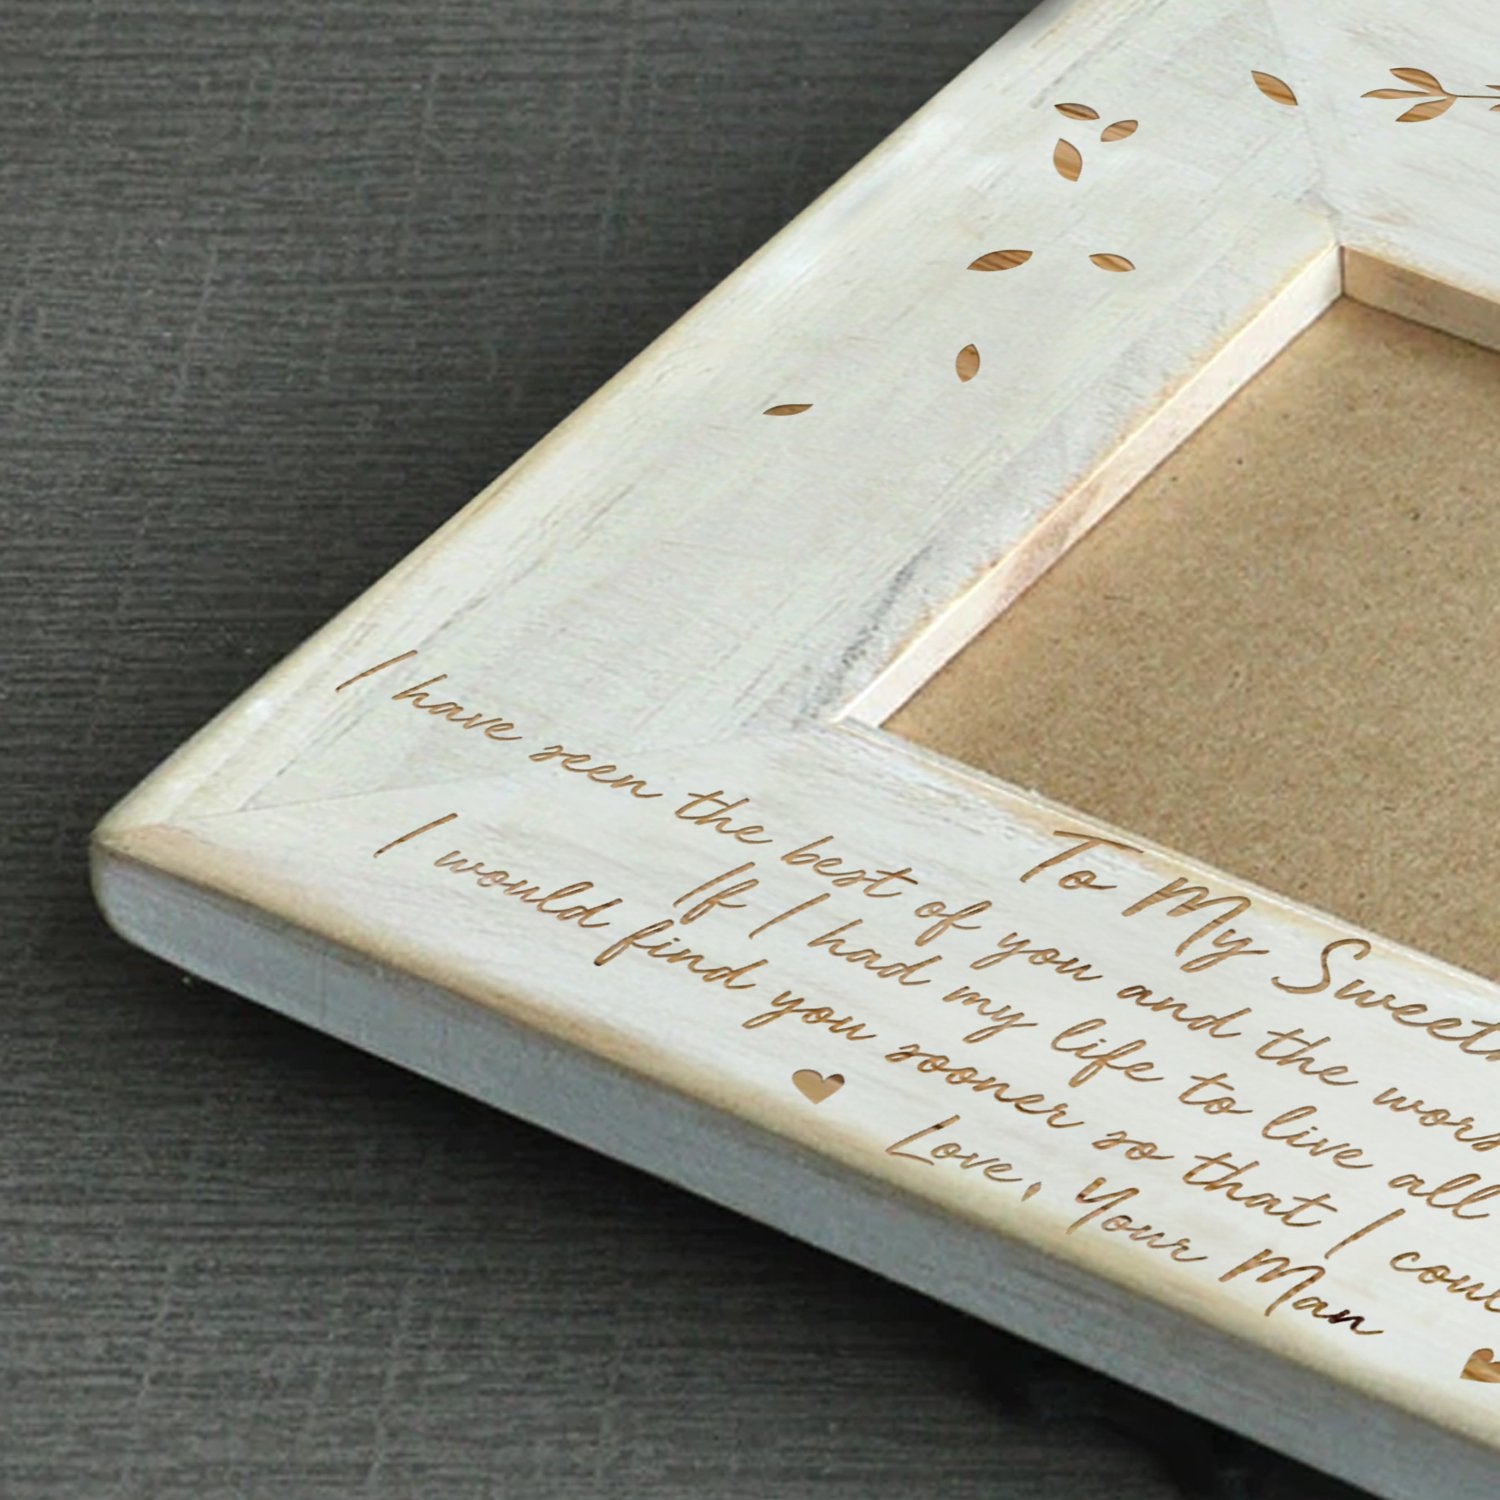 To My
I have seen the best of you and the
If I had my life to live all
I would find you sooner so that I
Love, Your Man